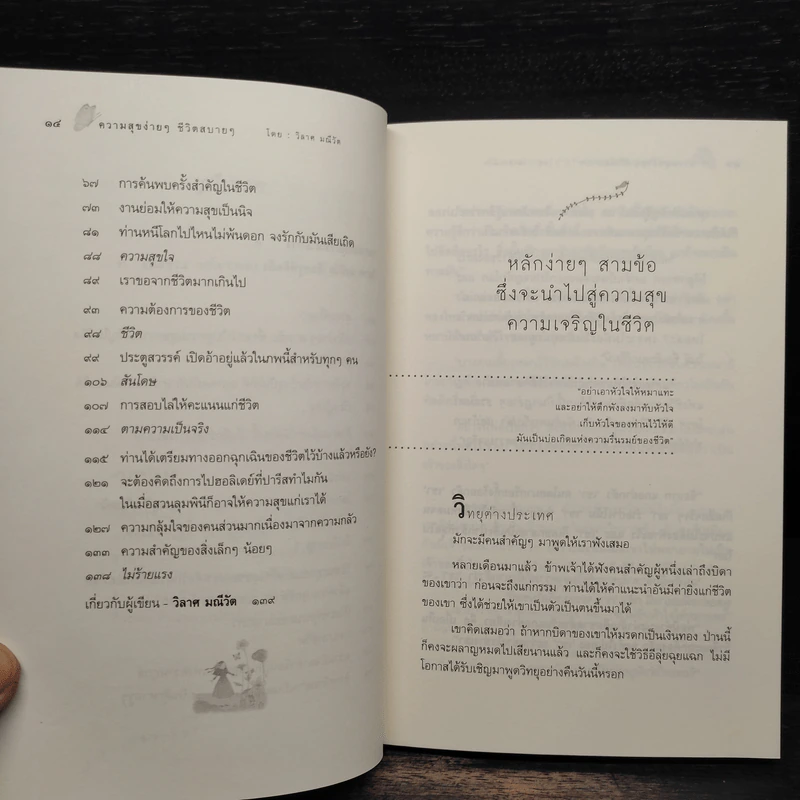 ๑๔ ความสุขง่ายๆ ชีวิตสบายๆ โดย : วิลาศ มณีวัต
๖๗ การค้นพบครั้งสำคัญในชีวิต
๗๓ งานย่อมให้ความสุขเป็นนิจ
๘๑ ท่านหนีโลกไปไหนไม่พ้นดอก จงรักกับมันเสียเถิด
๘๘ ความสุขใจ
๘๙ เราขอจากชีวิตมากเกินไป
๙๓ ความต้องการของชีวิต
๙๘ ชีวิต
๙๙ ประตูสวรรค์ เปิดอ้าอยู่แล้วในภพนี้สำหรับทุกๆ คน
๑๐๖ สันโดษ
๑๐๗ การสอบไล่ให้คะแนนแก่ชีวิต
๑๑๔ ตามความเป็นจริง
๑๑๕ ท่านได้เตรียมทางออกฉุกเฉินของชีวิตไว้บ้างแล้วหรือยัง?
๑๒๑ จะต้องคิดถึงการไปฮอลิเดย์ที่ปารีสทำไมกัน
ในเมื่อสวนลุมพินีก็อาจให้ความสุขแก่เราได้
๑๒๗ ความกลุ้มใจของคนส่วนมากเนื่องมาจากความกลัว
๑๓๓ ความสำคัญของสิ่งเล็กๆ น้อยๆ
๑๓๘ ไม่ร้ายแรง
เกี่ยวกับผู้เขียน - วิลาศ มณีวัต ๑๓๙
หลักง่ายๆ สามข้อ
ซึ่งจะนำไปสู่ความสุข
ความเจริญในชีวิต
"อย่าเอาหัวใจให้หมาแทะ
และอย่าให้ตึกพังลงมาทับหัวใจ
เก็บหัวใจของท่านไว้ให้ดี
มันเป็นบ่อเกิดแห่งความรื่นรมย์ของชีวิต"
วิทยุต่างประเทศ
มักจะมีคนสำคัญๆ มาพูดให้เราฟังเสมอ
หลายเดือนมาแล้ว ข้าพเจ้าได้ฟังคนสำคัญผู้หนึ่งเล่าถึงบิดา
ของเขาว่า ก่อนจะถึงแก่กรรม ท่านได้ให้คำแนะนำอันมีค่ายิ่งแก่ชีวิต
ของเขา ซึ่งได้ช่วยให้เขาเป็นตัวเป็นตนขึ้นมาได้
เขาคิดเสมอว่า ถ้าหากบิดาของเขาให้มรดกเป็นเงินทอง ป่านนี้
ก็คงจะผลาญหมดไปเสียนานแล้ว และก็คงจะใช้วิธีอีลุ่ยฉุยแฉก ไม่มี
โอกาสได้รับเชิญมาพูดวิทยุอย่างคืนวันนี้หรอก